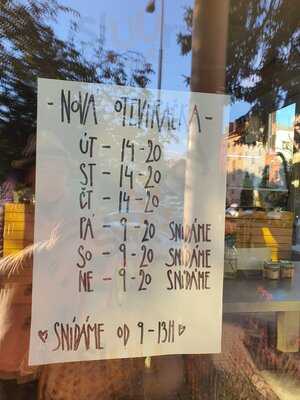 - NOVÁ OTEVÍRAČKA -
ÚT - 14 - 20
ST - 14 - 20
ČT - 14 - 20
PÁ - 9 - 20 SNÍDÁME
SO - 9 - 20 SNÍDÁME
NE - 9 - 20 SNÍDÁME
♡ SNÍDÁME OD 9 - 13H ♡